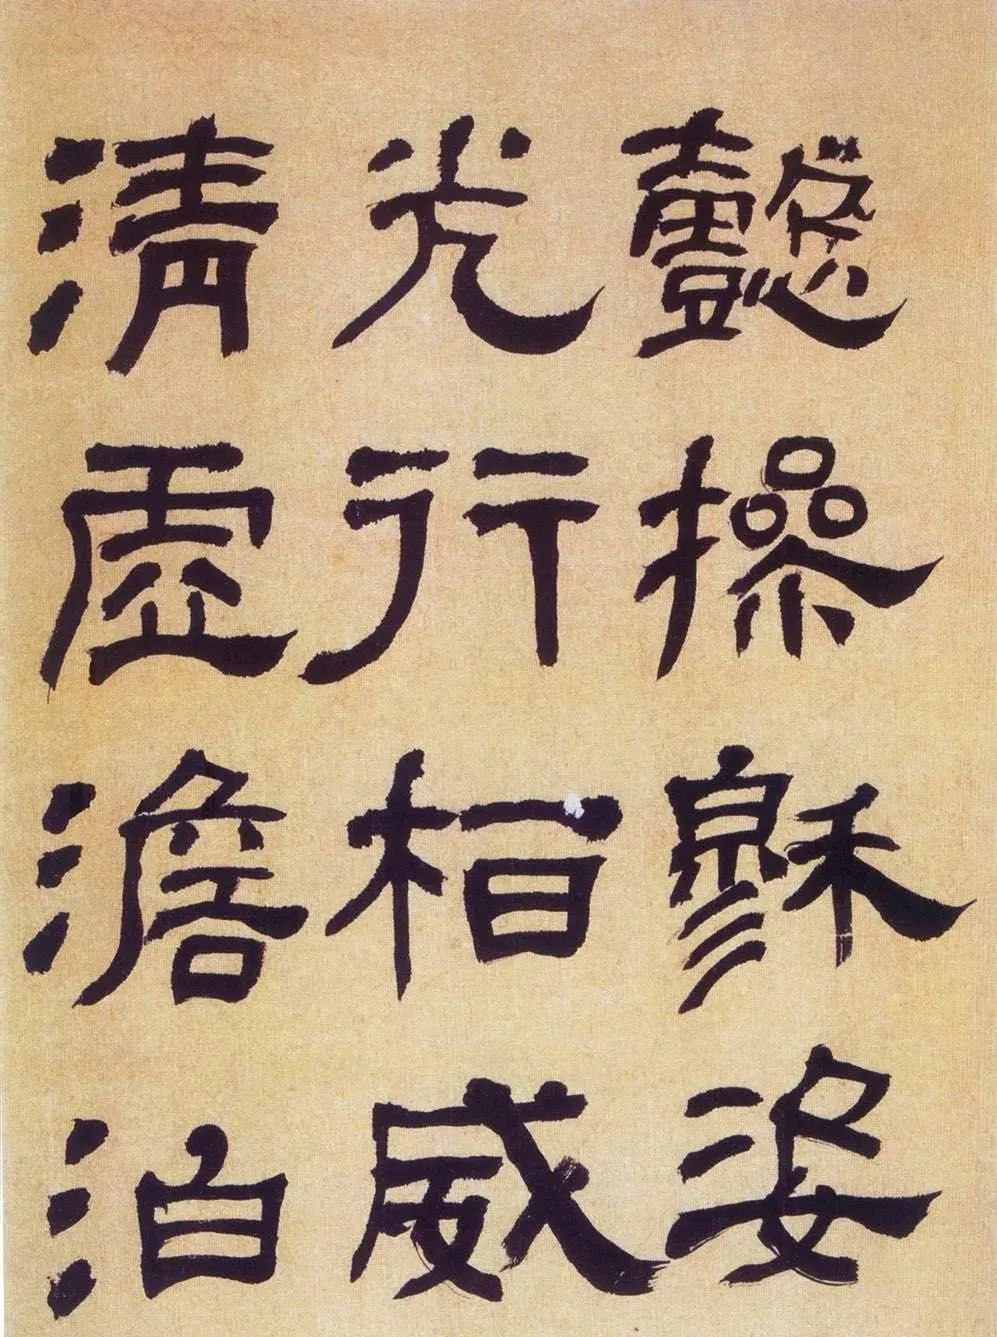 懿操穆姿
光行相威
清虛澹泊